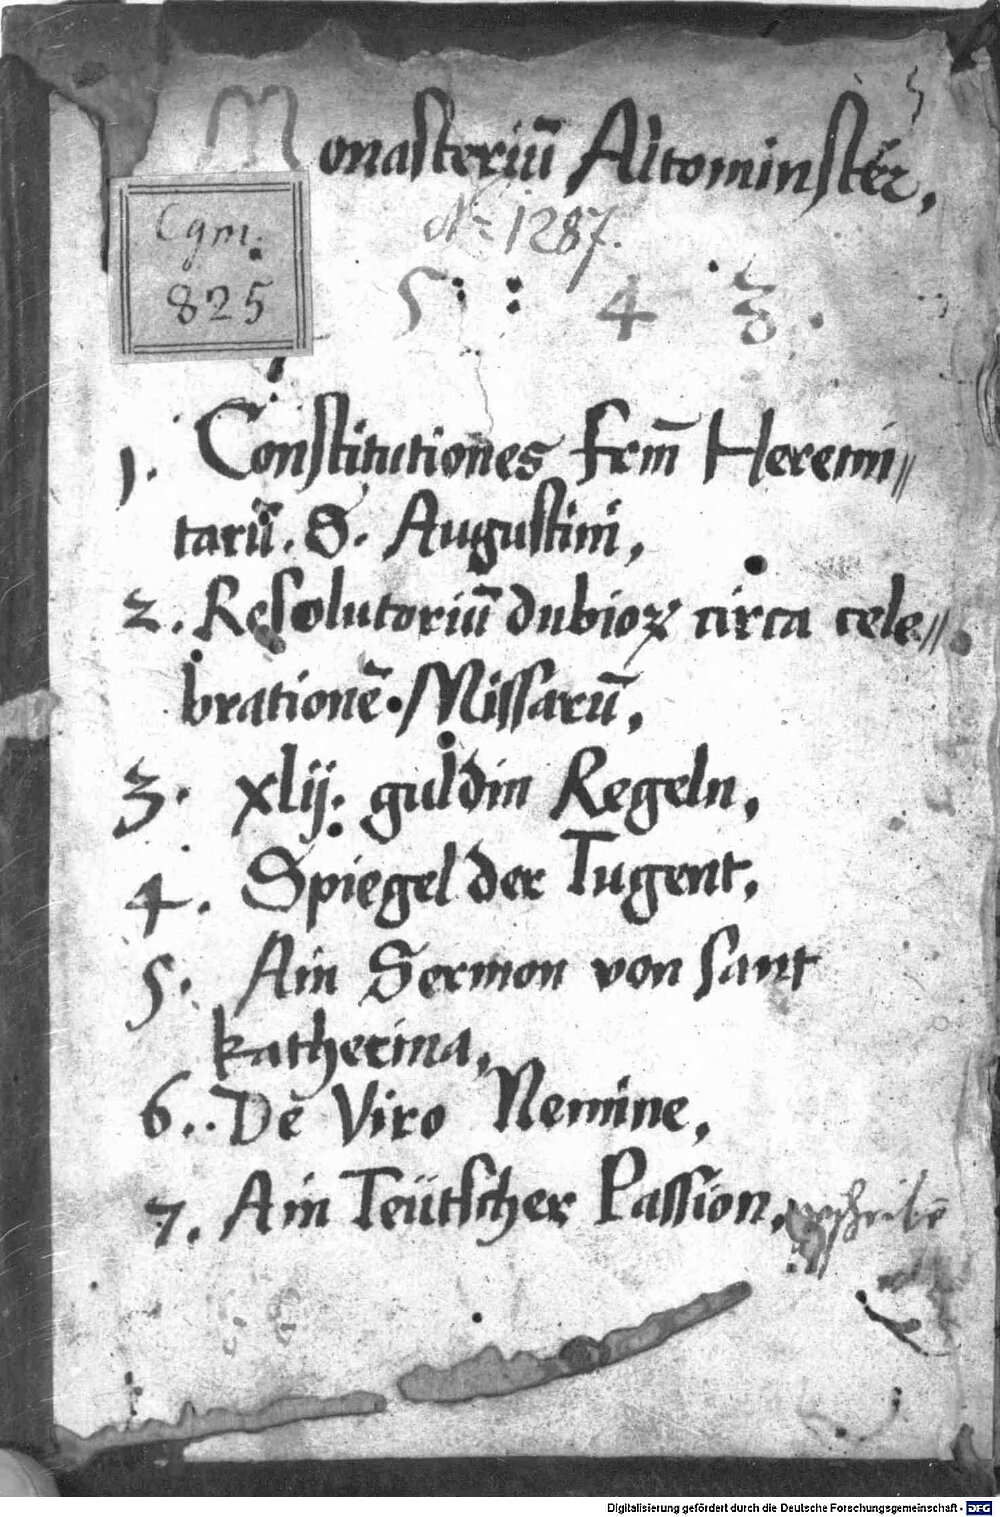 Monasteriū Altominster,
Cgm.
825
No 1287.
5 : 4 3.
1. Constitutiones frm̄ Heremi//
tarū. S. Augustini,
2. Resolutoriū dubioꝝ circa cele//
brationē Missarū,
3. xlij. guldin Regeln,
4. Spiegel der Tugent,
5. Ain Sermon von sant
katherina,
6. De Viro Nemine,
7. Ain Teütscher Passion,
Digitalisierung gefördert durch die Deutsche Forschungsgemeinschaft - DFG